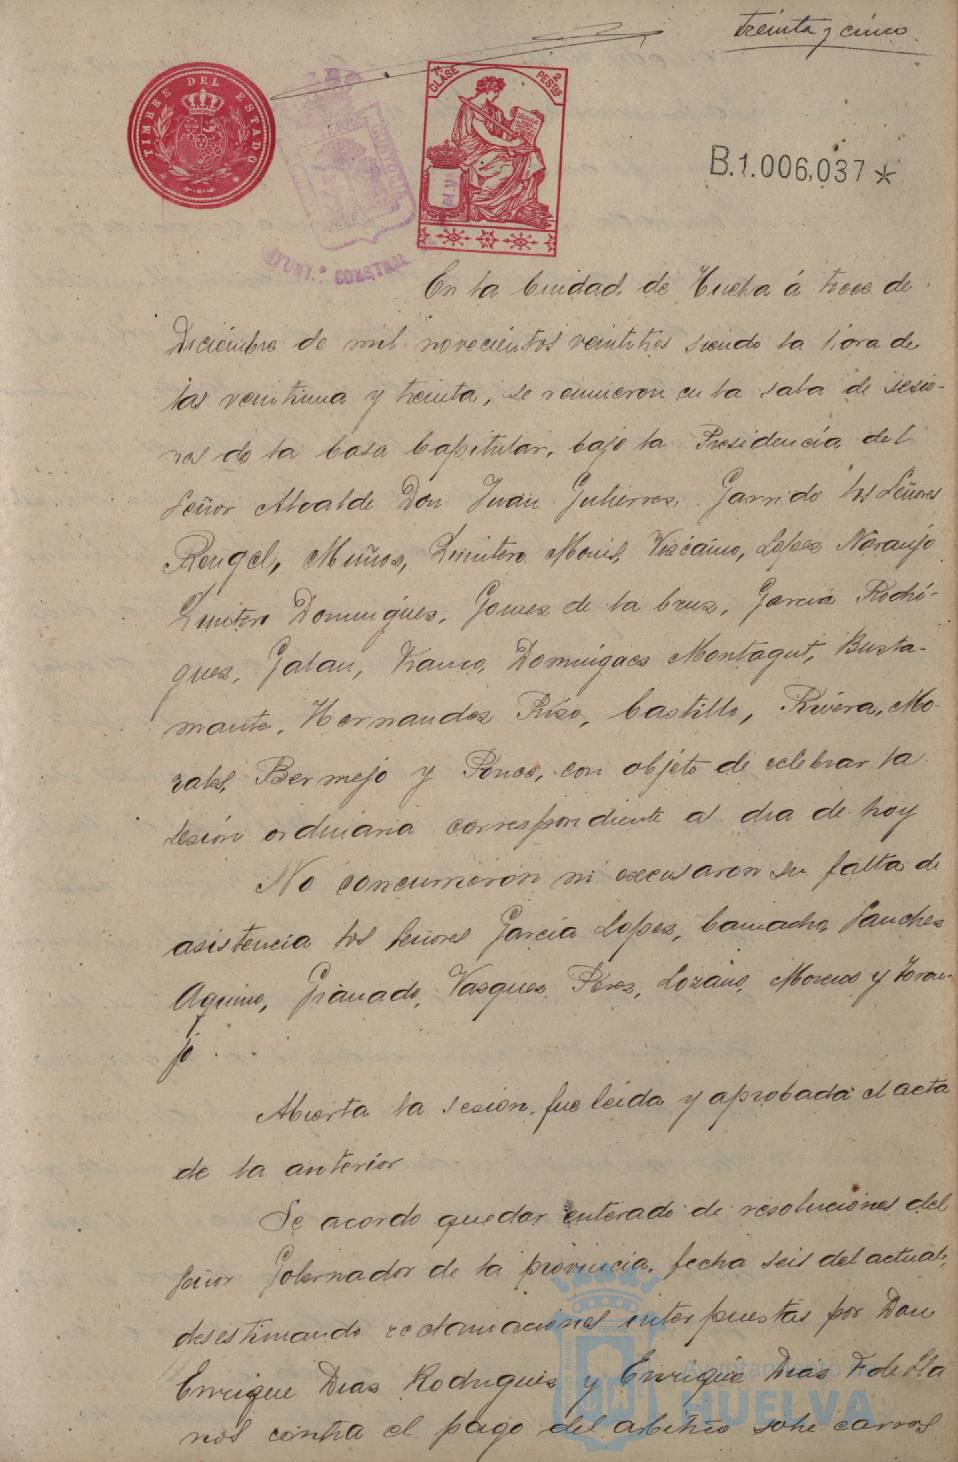 treinta y cinco
TIMBRE DEL ESTADO
7ª CLASE
2 PESTAS
B.1.006,037*
AYUNT.º CONSTNAL
En la Ciudad de Huelva á trece de
Diciembre de mil novecientos veintitres siendo la hora de
las veintiuna y treinta, se reunieron en la sala de sesio-
nes de la Casa Capitular, bajo la Presidencia del
Señor Alcalde Don Juan Gutierres Garrido los Señores
Rengel, Muños, Quintero Moril, Viscaino, Lopes Naranjo
Quintero Domingues, Gomes de la Crus, Garcia Rodri-
gues, Galan, Franco, Domingues Montagut, Busta-
mante, Hernandes Riso, Castillo, Rivera, Mo-
rales, Bermejo y Ponce, con objeto de celebrar la
sesión ordinaria correspondiente al dia de hoy
No concurrieron ni excusaron su falta de
asistencia los Señores Garcia Lopes, Camacho, Sanches
Aquino, Granado, Vasques Peres, Lozano, Moreno y Toron-
jo.
Abierta la sesion, fue leida y aprobada el acta
de la anterior
Se acordo quedar enterado de resoluciones del
Señor Gobernador de la provincia, fecha seis del actual,
desestimando reclamaciones interpuestas por Don
Enrique Dias Rodrigues y Enrique Dias F. de Lla
nos contra el pago del arbitrio sobre carros
Ayuntamiento de
HUELVA